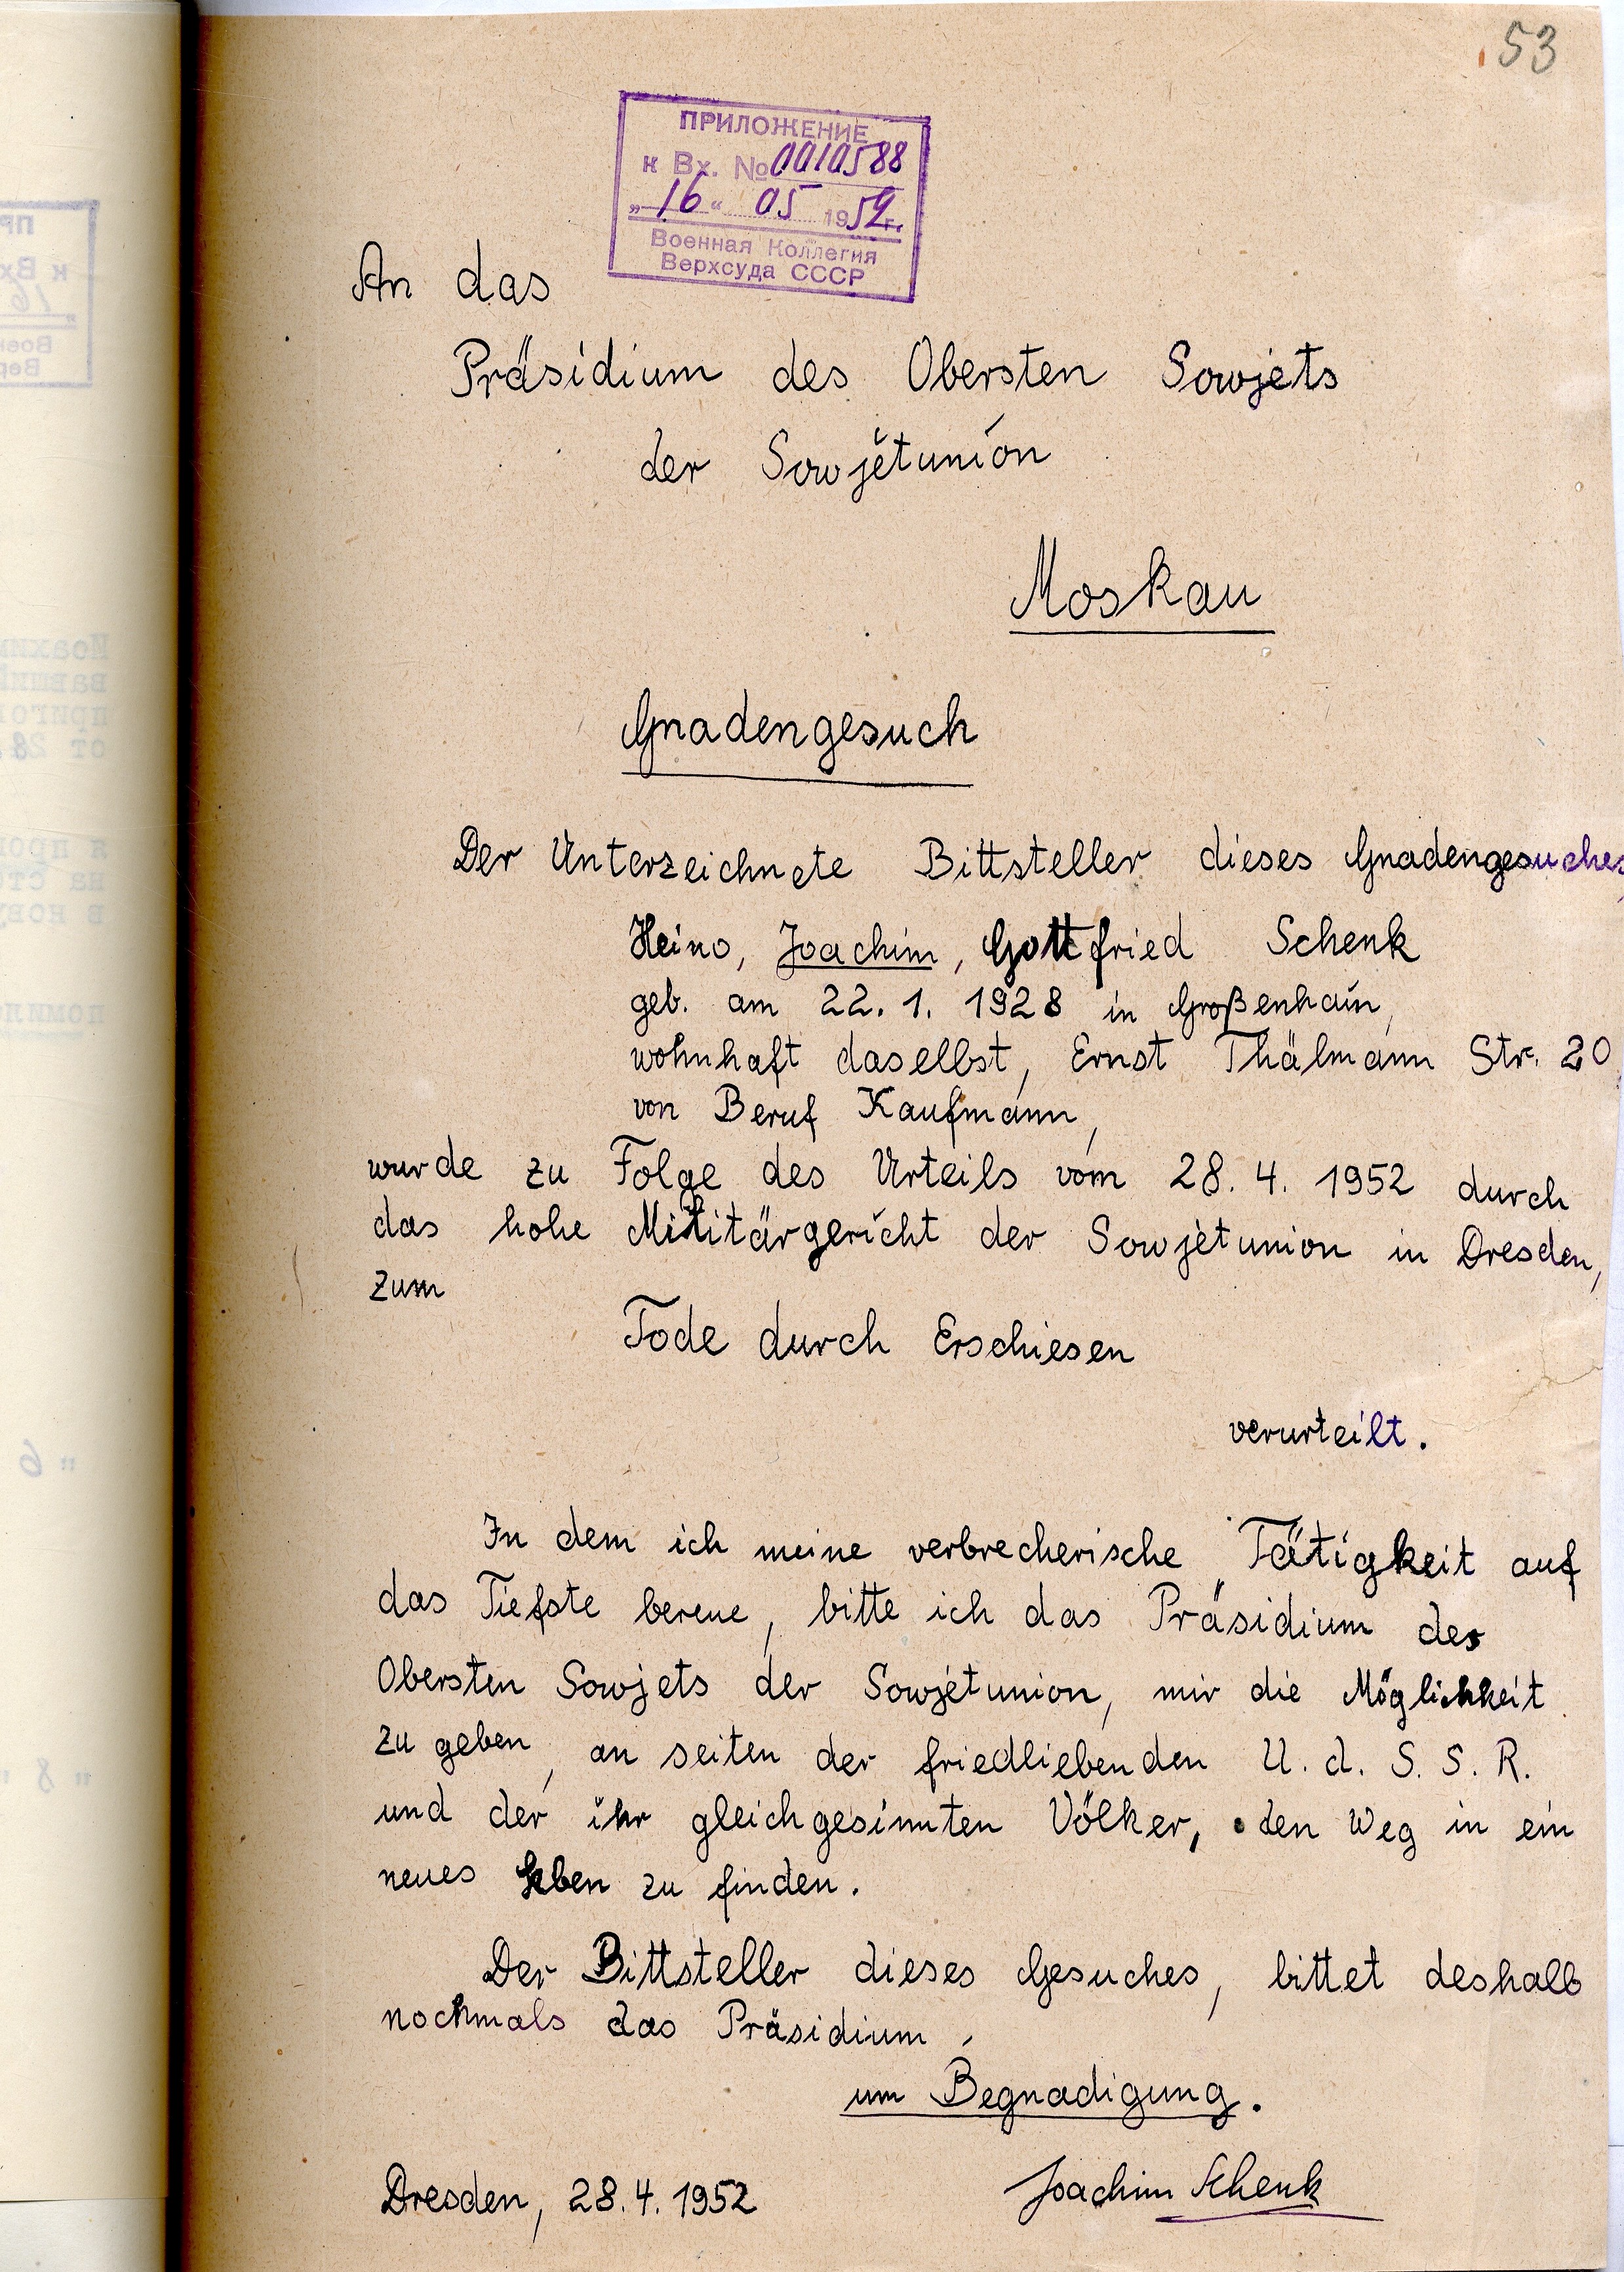 53
ПРИЛОЖЕНИЕ
к Вх. № 0010588
„16“ 05 1952г.
Военная Коллегия
Верхсуда СССР
An das
Präsidium des Obersten Sowjets
der Sowjetunion
Moskau
Gnadengesuch
Der Unterzeichnete Bittsteller dieses Gnadengesuches,
Heino, Joachim, Gottfried Schenk
geb. am 22. 1. 1928 in Großenhain,
wohnhaft daselbst, Ernst Thälmann Str. 20,
von Beruf Kaufmann,
wurde zu Folge des Urteils vom 28. 4. 1952 durch
das hohe Militärgericht der Sowjetunion in Dresden,
zum
Tode durch Erschiesen
verurteilt.
In dem ich meine verbrecherische Tätigkeit auf
das Tiefste bereue, bitte ich das Präsidium des
Obersten Sowjets der Sowjetunion, mir die Möglichkeit
zu geben, an seiten der friedliebenden U. d. S. S. R.
und der ihr gleichgesinnten Völker, den Weg in ein
neues Leben zu finden.
Der Bittsteller dieses Gesuches, bittet deshalb
nochmals das Präsidium,
um Begnadigung.
Dresden, 28.4.1952 Joachim Schenk